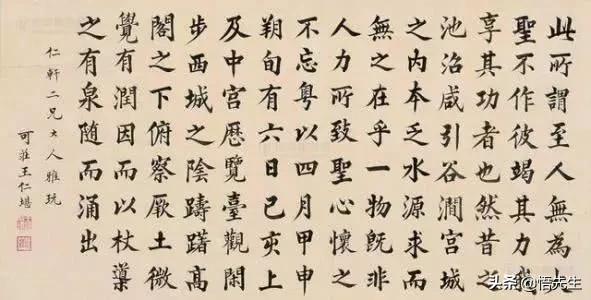 此所謂至人無為大
聖不作彼竭其力我
享其功者也然昔之
池沼咸引谷澗宮城
之内本乏水源求而
無之在乎一物既非
人力所致聖心懷之
不忘粤以四月甲申
朔旬有六日己亥上
及中宮歷覽臺觀閑
步西城之陰躊躇高
閣之下俯察厥土微
覺有潤因而以杖導
之有泉随而涌出
仁軒二兄大人雅玩
可莊王仁堪
头条 @悟先生